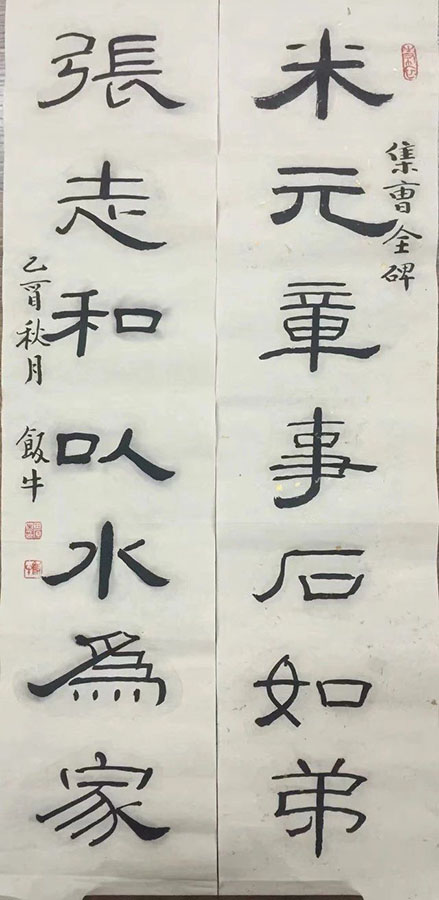 米元章事石如弟
集曹全碑
張志和以水爲家
乙酉秋月 飯牛